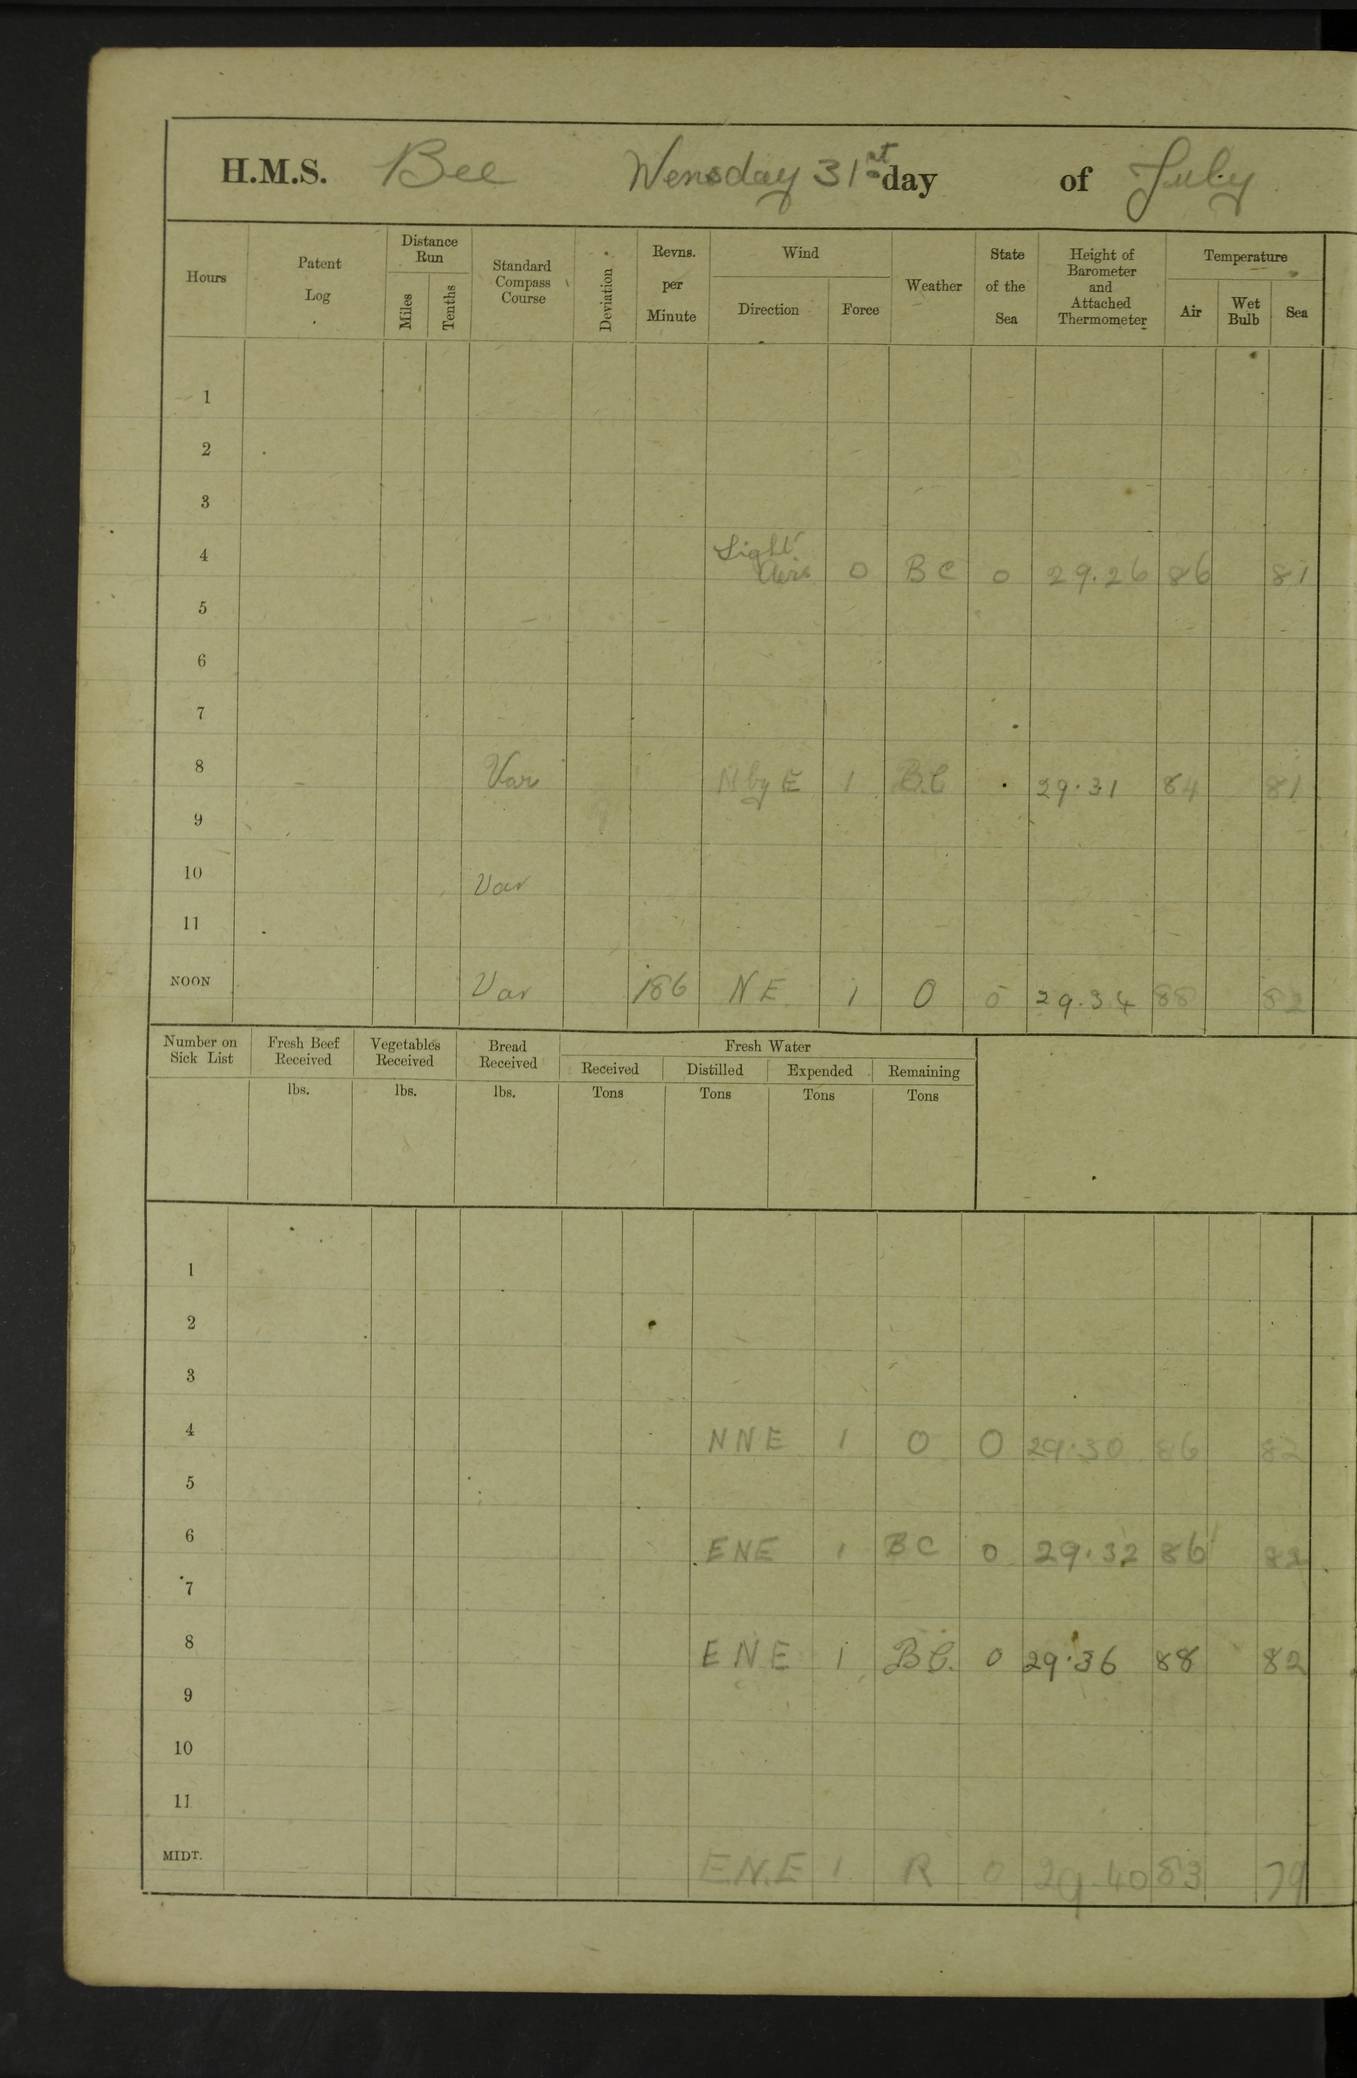 H.M.S. Bee Wensday 31st day of July
Hours Patent Log Distance Run Miles Tenths Standard Compass Course Deviation Revns. per Minute Wind Direction Force Weather State of the Sea Height of Barometer and Attached Thermometer Temperature Air Wet Bulb Sea
1
2
3
4 Light Airs 0 BC 0 29.26 86 81
5
6
7
8 Var N by E 1 B.C 29.31 84 81
9
10 Var
11
NOON Var 186 NE 1 O 0 29.34 88 82
Number on Sick List Fresh Beef Received Vegetables Received Bread Received Fresh Water
Received Distilled Expended Remaining
lbs. lbs. lbs. Tons Tons Tons Tons
1
2
3
4 NNE 1 O 0 29.30 86 82
5
6 ENE 1 BC 0 29.32 86 82
7
8 ENE 1 B.C. 0 29.36 88 82
9
10
11
MIDT. E.N.E 1 R 0 29.40 83 79